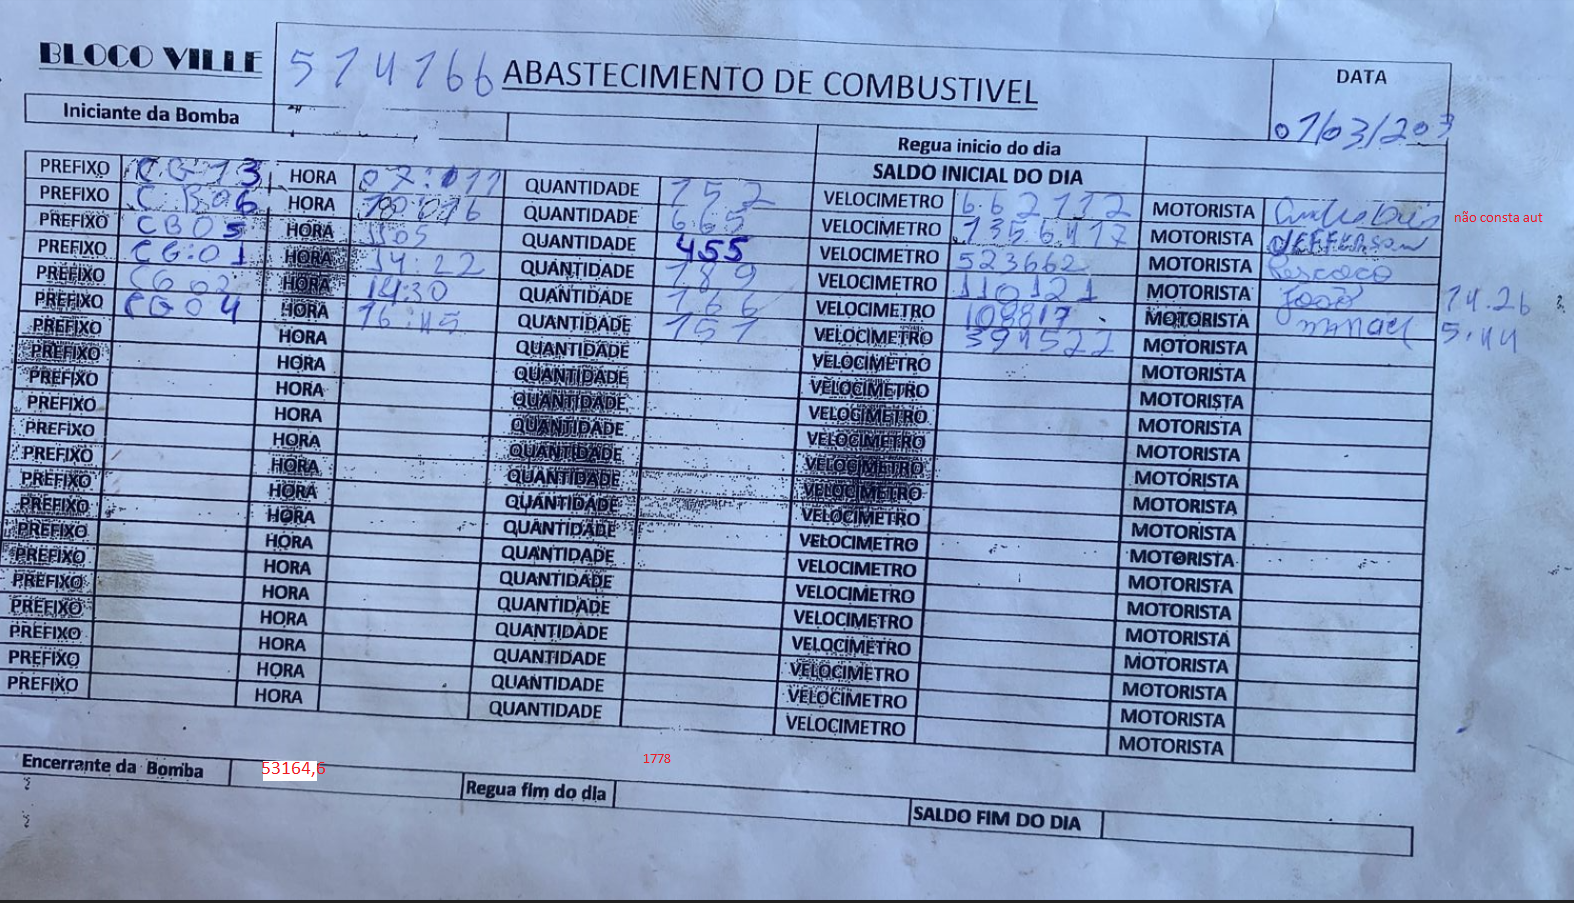 BLOCO VILLE 514166 ABASTECIMENTO DE COMBUSTIVEL DATA
Iniciante da Bomba 01/03/203
Regua inicio do dia
SALDO INICIAL DO DIA
PREFIXO CG 13 HORA 07:011 QUANTIDADE 152 VELOCIMETRO 662112 MOTORISTA não consta aut
PREFIXO CB06 HORA QUANTIDADE 665 VELOCIMETRO 1356417 MOTORISTA JEFFERSON
PREFIXO CB05 HORA 1105 QUANTIDADE 455 VELOCIMETRO 523662 MOTORISTA
PREFIXO CG:01 HORA 14:22 QUANTIDADE 189 VELOCIMETRO 110121 MOTORISTA João 14.26
PREFIXO CG 02 HORA 14:30 QUANTIDADE 166 VELOCIMETRO 108817 MOTORISTA 5.44
PREFIXO CG04 HORA 16:45 QUANTIDADE 151 VELOCIMETRO 394522 MOTORISTA
PREFIXO HORA QUANTIDADE VELOCIMETRO MOTORISTA
PREFIXO HORA QUANTIDADE VELOCIMETRO MOTORISTA
PREFIXO HORA QUANTIDADE VELOCIMETRO MOTORISTA
PREFIXO HORA QUANTIDADE VELOCIMETRO MOTORISTA
PREFIXO HORA QUANTIDADE VELOCIMETRO MOTORISTA
PREFIXO HORA QUANTIDADE VELOCIMETRO MOTORISTA
PREFIXO HORA QUANTIDADE VELOCIMETRO MOTORISTA
PREFIXO HORA QUANTIDADE VELOCIMETRO MOTORISTA
PREFIXO HORA QUANTIDADE VELOCIMETRO MOTORISTA
PREFIXO HORA QUANTIDADE VELOCIMETRO MOTORISTA
PREFIXO HORA QUANTIDADE VELOCIMETRO MOTORISTA
PREFIXO HORA QUANTIDADE VELOCIMETRO MOTORISTA
PREFIXO HORA QUANTIDADE VELOCIMETRO MOTORISTA
PREFIXO HORA QUANTIDADE VELOCIMETRO MOTORISTA
PREFIXO HORA QUANTIDADE VELOCIMETRO MOTORISTA
1778
Encerrante da Bomba 53164,6 Regua fim do dia SALDO FIM DO DIA